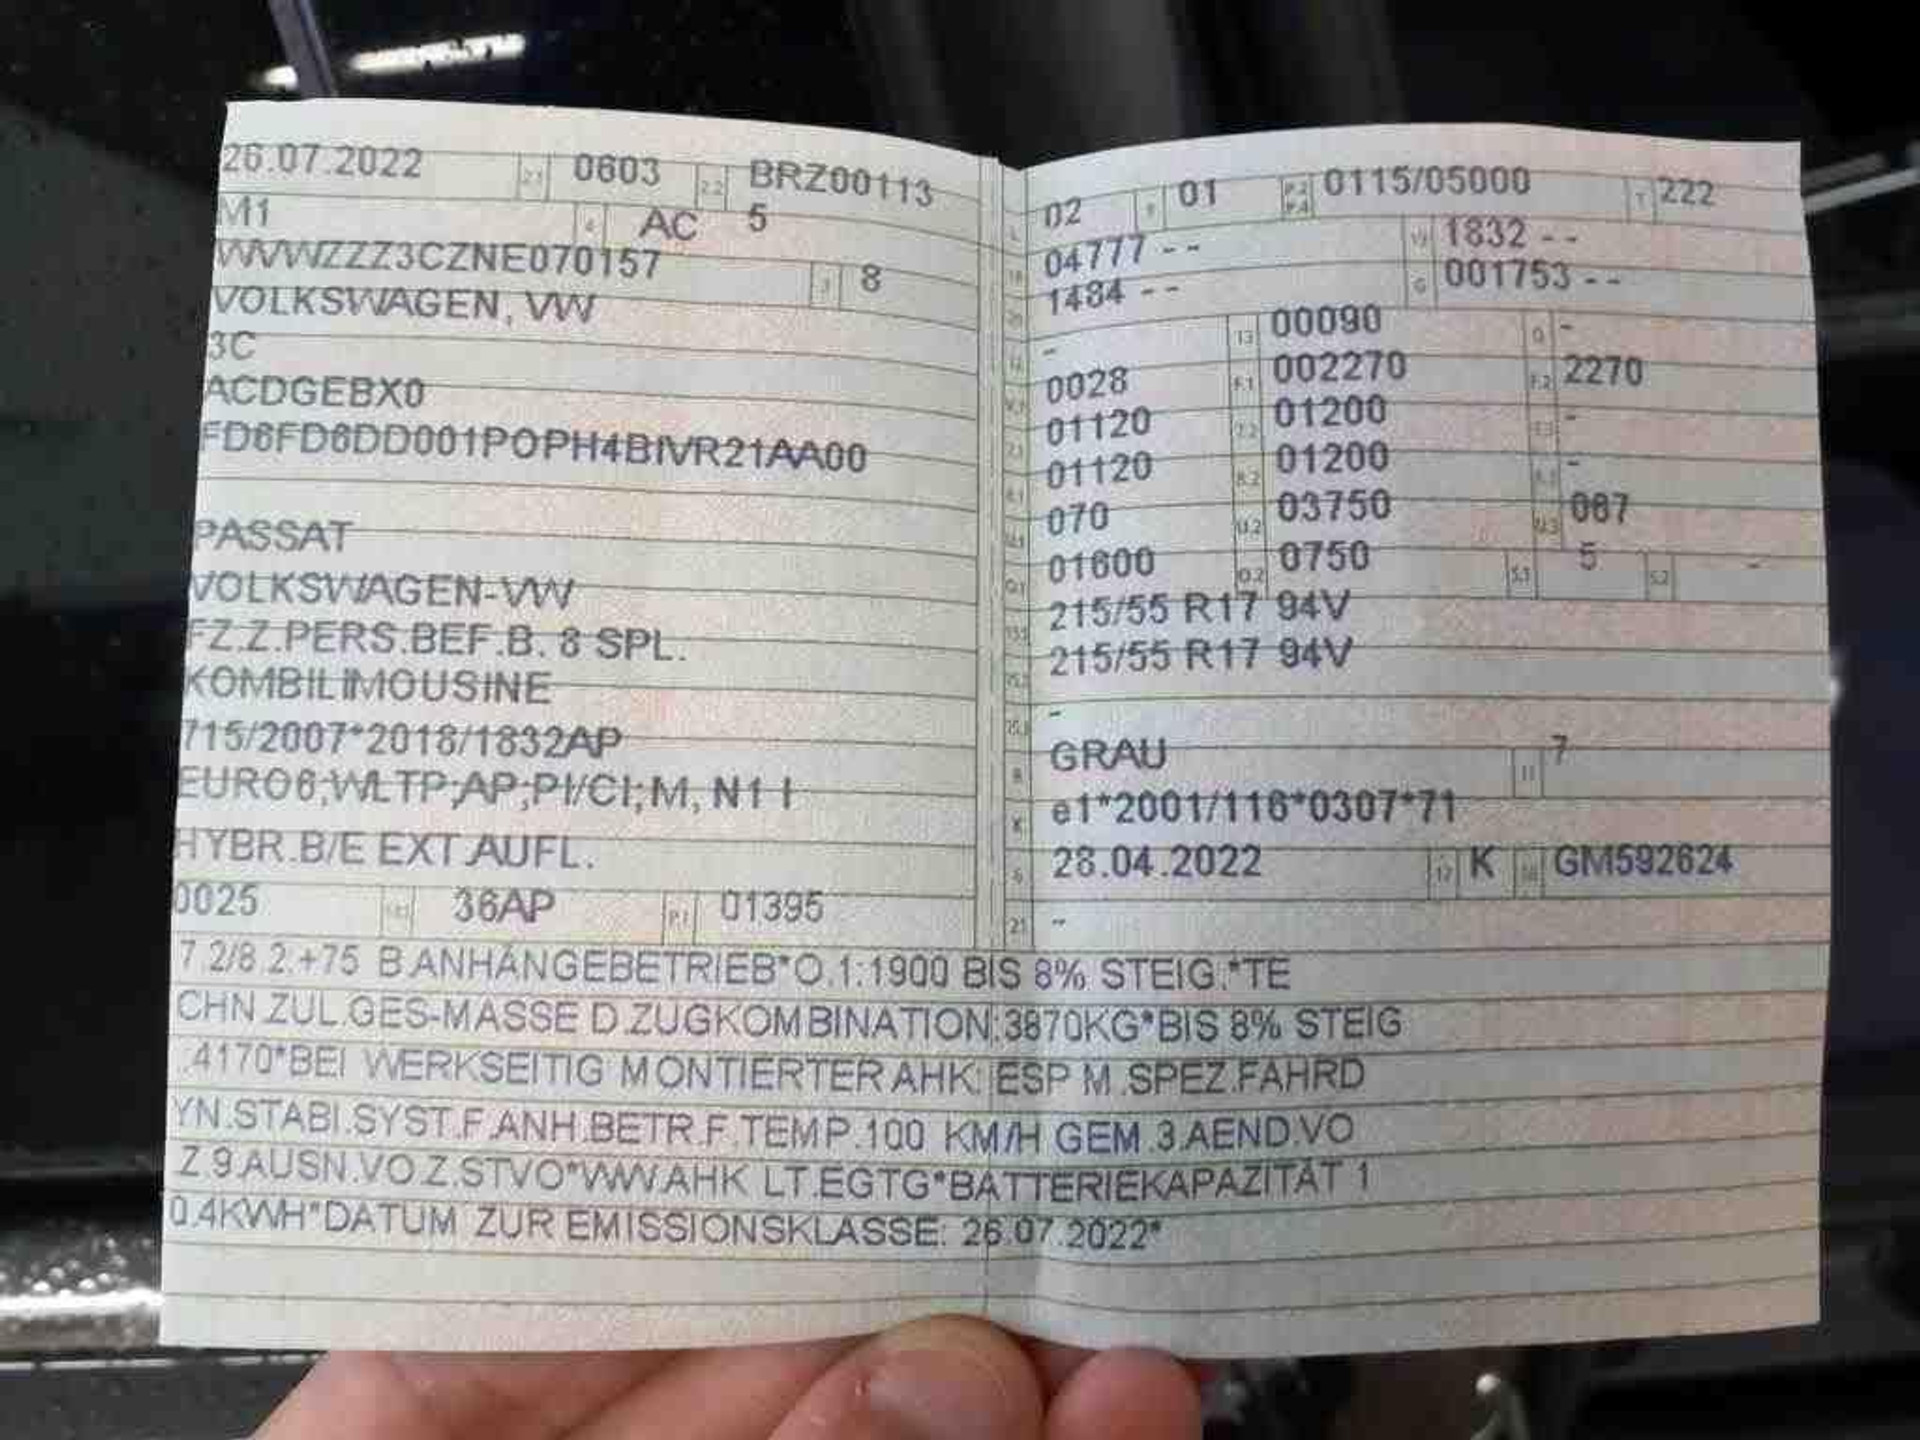 26.07.2022 2.1 0603 2.2 BRZ00113
M1 4 AC 5
WVWZZZ3CZNE070157 3 8
VOLKSWAGEN, VW
3C
ACDGEBX0
FD6FD6DD001POPH4BIVR21AA00
PASSAT
VOLKSWAGEN-VW
FZ.Z.PERS.BEF.B. 8 SPL.
KOMBILIMOUSINE
715/2007*2018/1832AP
EURO6;WLTP;AP;PI/CI;M, N1 I
HYBR.B/E EXT.AUFL.
0025 14.1 36AP P.1 01395
L 02 9 01 P.2 P.4 0115/05000 T 222
18 04777 -- 19 1832 --
20 1484 -- G 001753 --
12 - 13 00090 Q -
V.7 0028 F.1 002270 F.2 2270
7.1 01120 7.2 01200 7.3 -
8.1 01120 8.2 01200 8.3 -
U.1 070 U.2 03750 U.3 067
O.1 01600 O.2 0750 S.1 5 S.2 -
15.1 215/55 R17 94V
15.2 215/55 R17 94V
15.3 -
R GRAU 11 7
K e1*2001/116*0307*71
6 28.04.2022 17 K 16 GM592624
21 -
7.2/8.2.+75 B.ANHÄNGEBETRIEB*O.1:1900 BIS 8% STEIG.*TE
CHN.ZUL.GES-MASSE D.ZUGKOMBINATION:3870KG*BIS 8% STEIG
.4170*BEI WERKSEITIG MONTIERTER AHK: ESP M.SPEZ.FAHRD
YN.STABI.SYST.F.ANH.BETR.F.TEMP.100 KM/H GEM.3.AEND.VO
Z.9.AUSN.VO.Z.STVO*WW.AHK LT.EGTG*BATTERIEKAPAZITÄT 1
0.4KWH*DATUM ZUR EMISSIONSKLASSE: 26.07.2022*